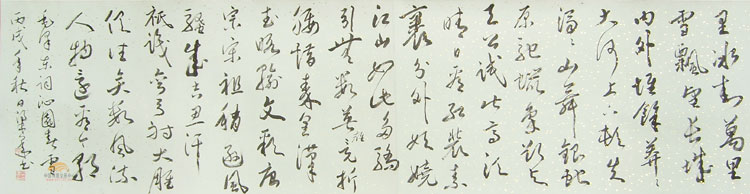 里冰封萬里
雪飄望长城
内外惟餘莽
大河上下顿失
滔〻山舞銀蛇
原馳蠟象欲与
天公試比高须
晴日看红裝素
裹分外妖嬈
江山如此多驕
引無数英雄竞折
腰惜秦皇漢
武略输文彩唐
宗宋祖稍逊風
騷成吉思汗
祇識弯弓射大雕
俱往矣数風流
人物還看今朝
毛泽东词沁園春雪
丙戌年秋日梁